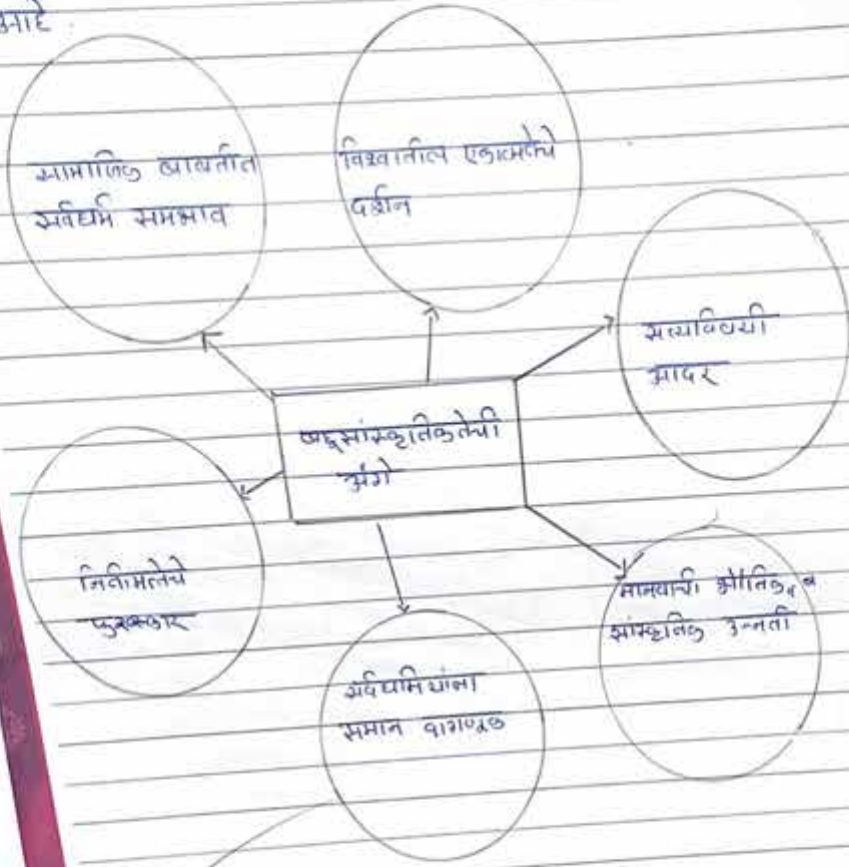 आहे
सामाजिक बाबतीत
सर्वधर्म समभाव
विश्वातील एकात्मतेचे
दर्शन
सत्याविषयी
आदर
बहुसांस्कृतिकतेची
अंगे
नितीमत्तेचे
पुरस्कार
मानवाची भौतिक व
सांस्कृतिक उन्नती
सर्वधर्मियांना
समान वागणूक